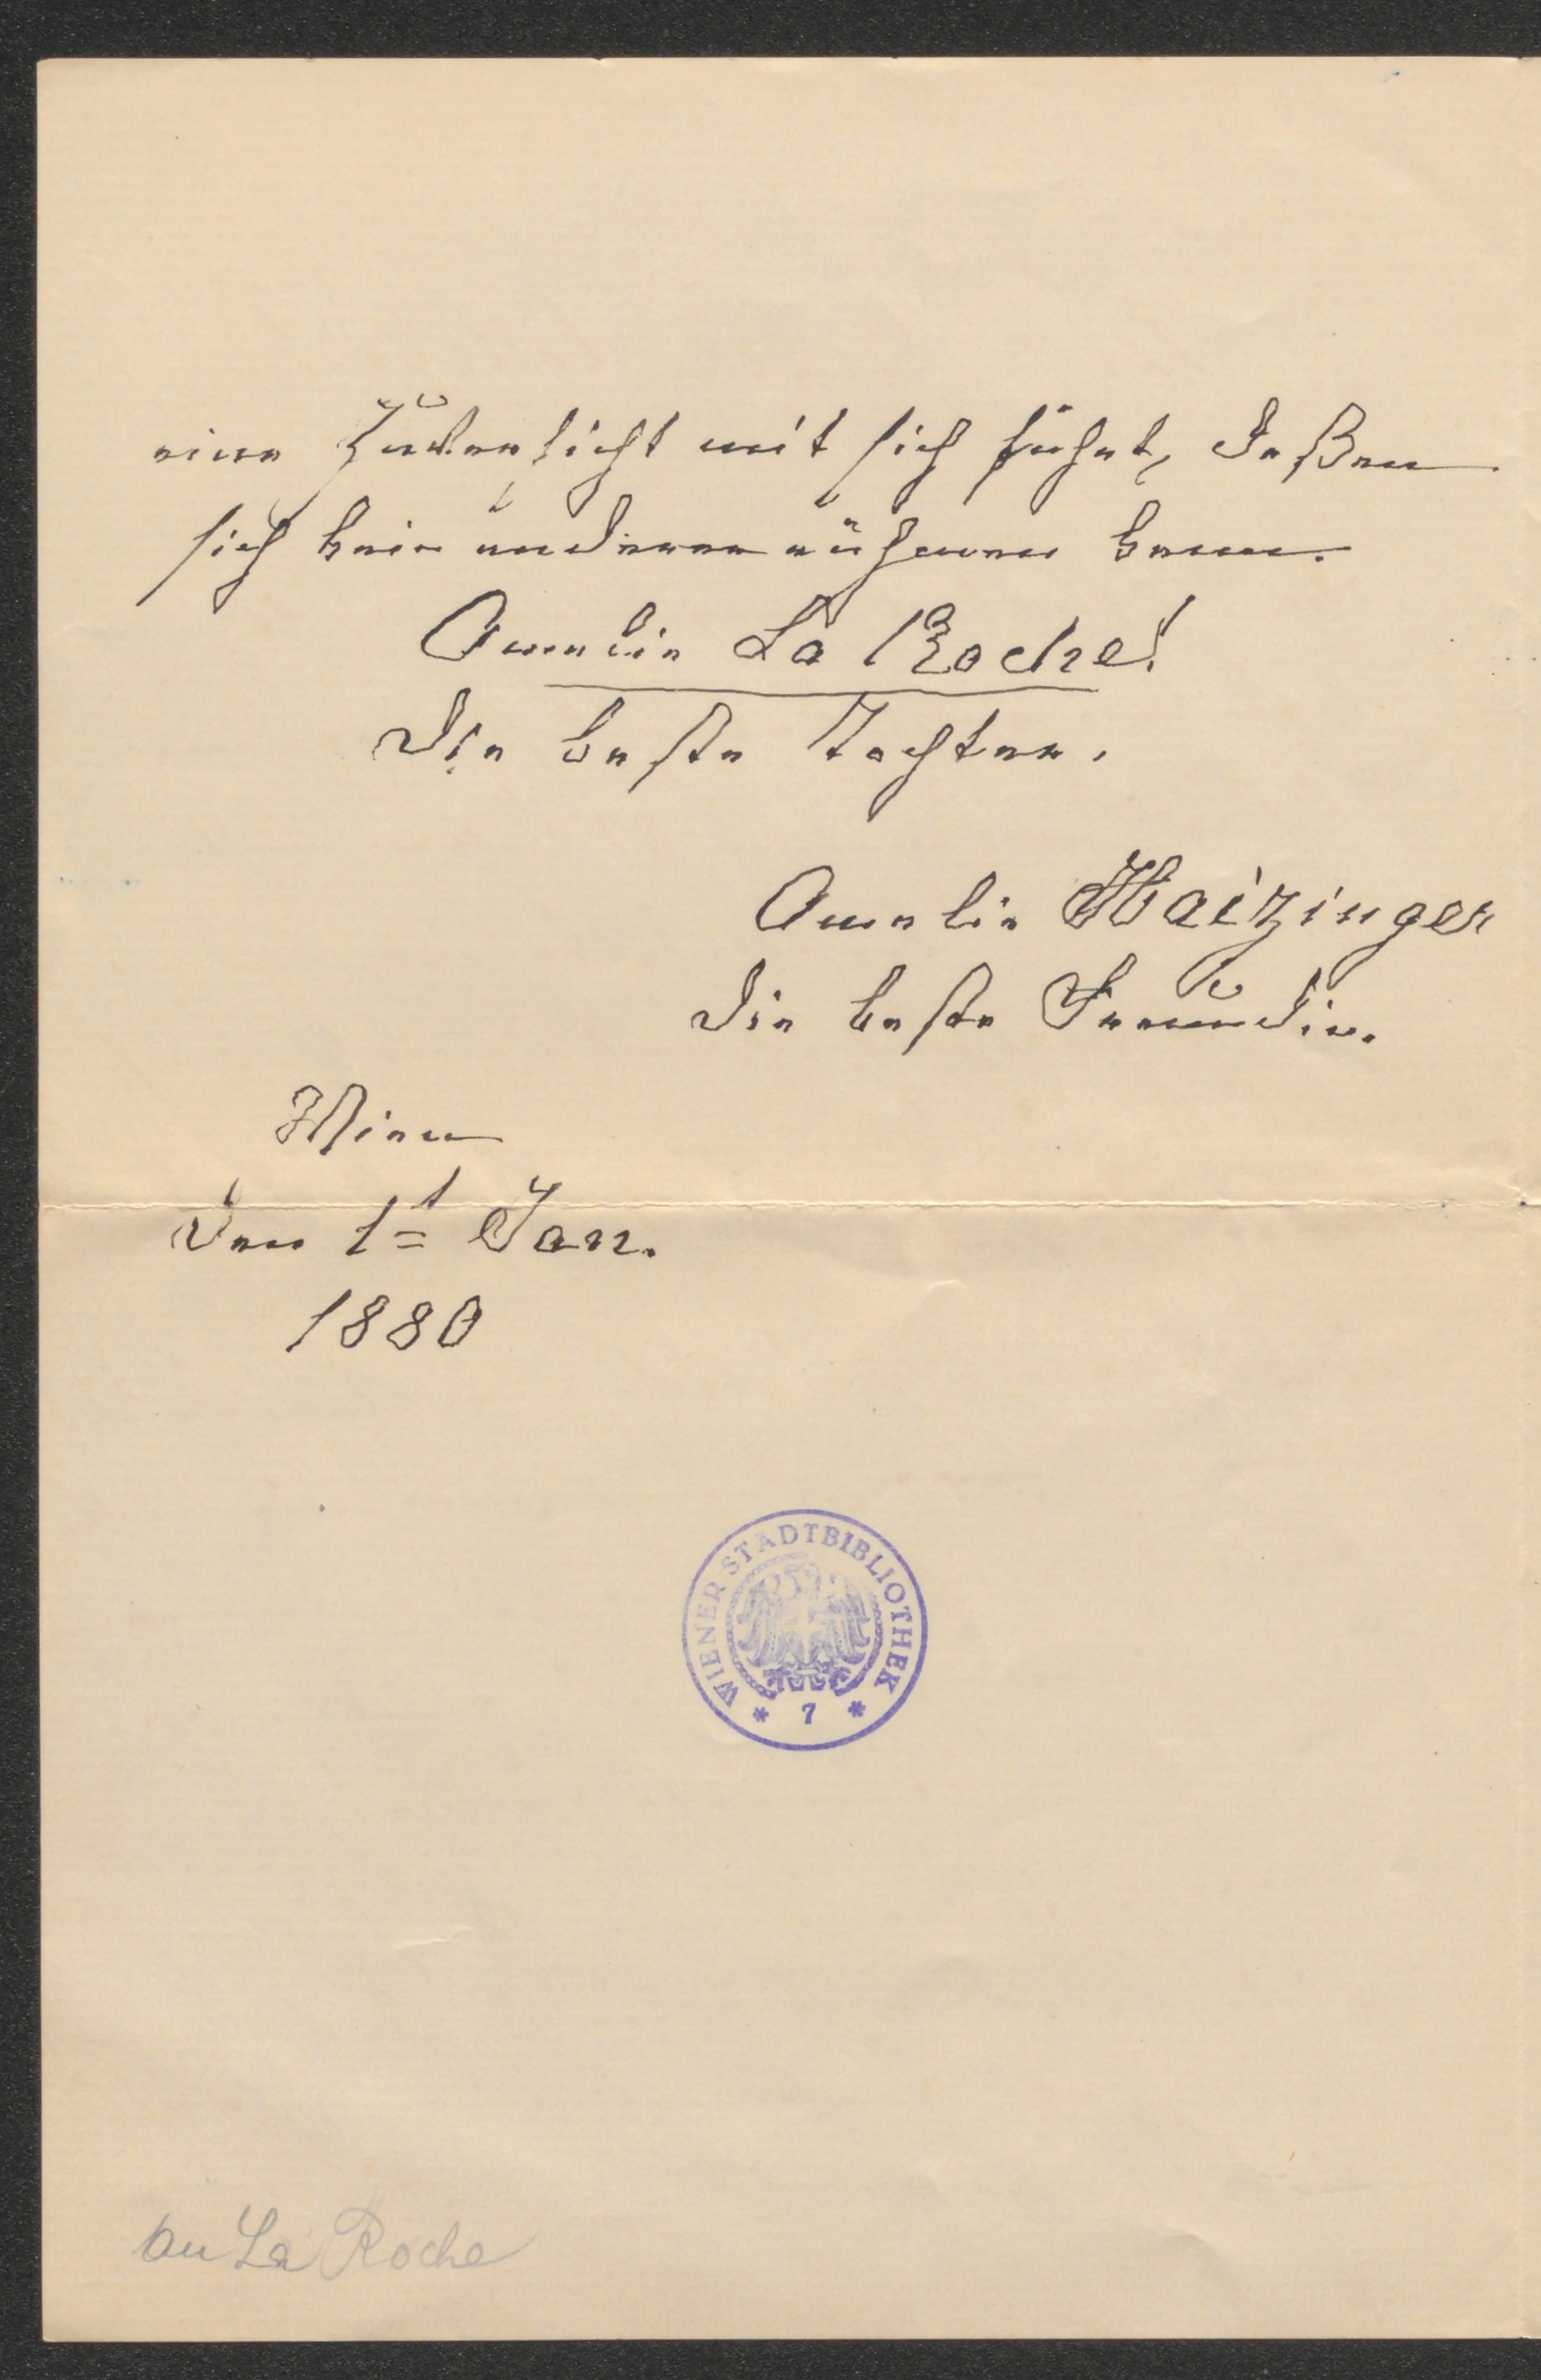 eine Zuversicht mit sich führt, deßen
sich kein anderer rühmen kann.
Amalie La Roche!
die beste Tochter.
Amalie Haizinger
die beste Freundin.
Wien
den 1t Jan.
1880
WIENER STADTBIBLIOTHEK
* 7 *
an La Roche